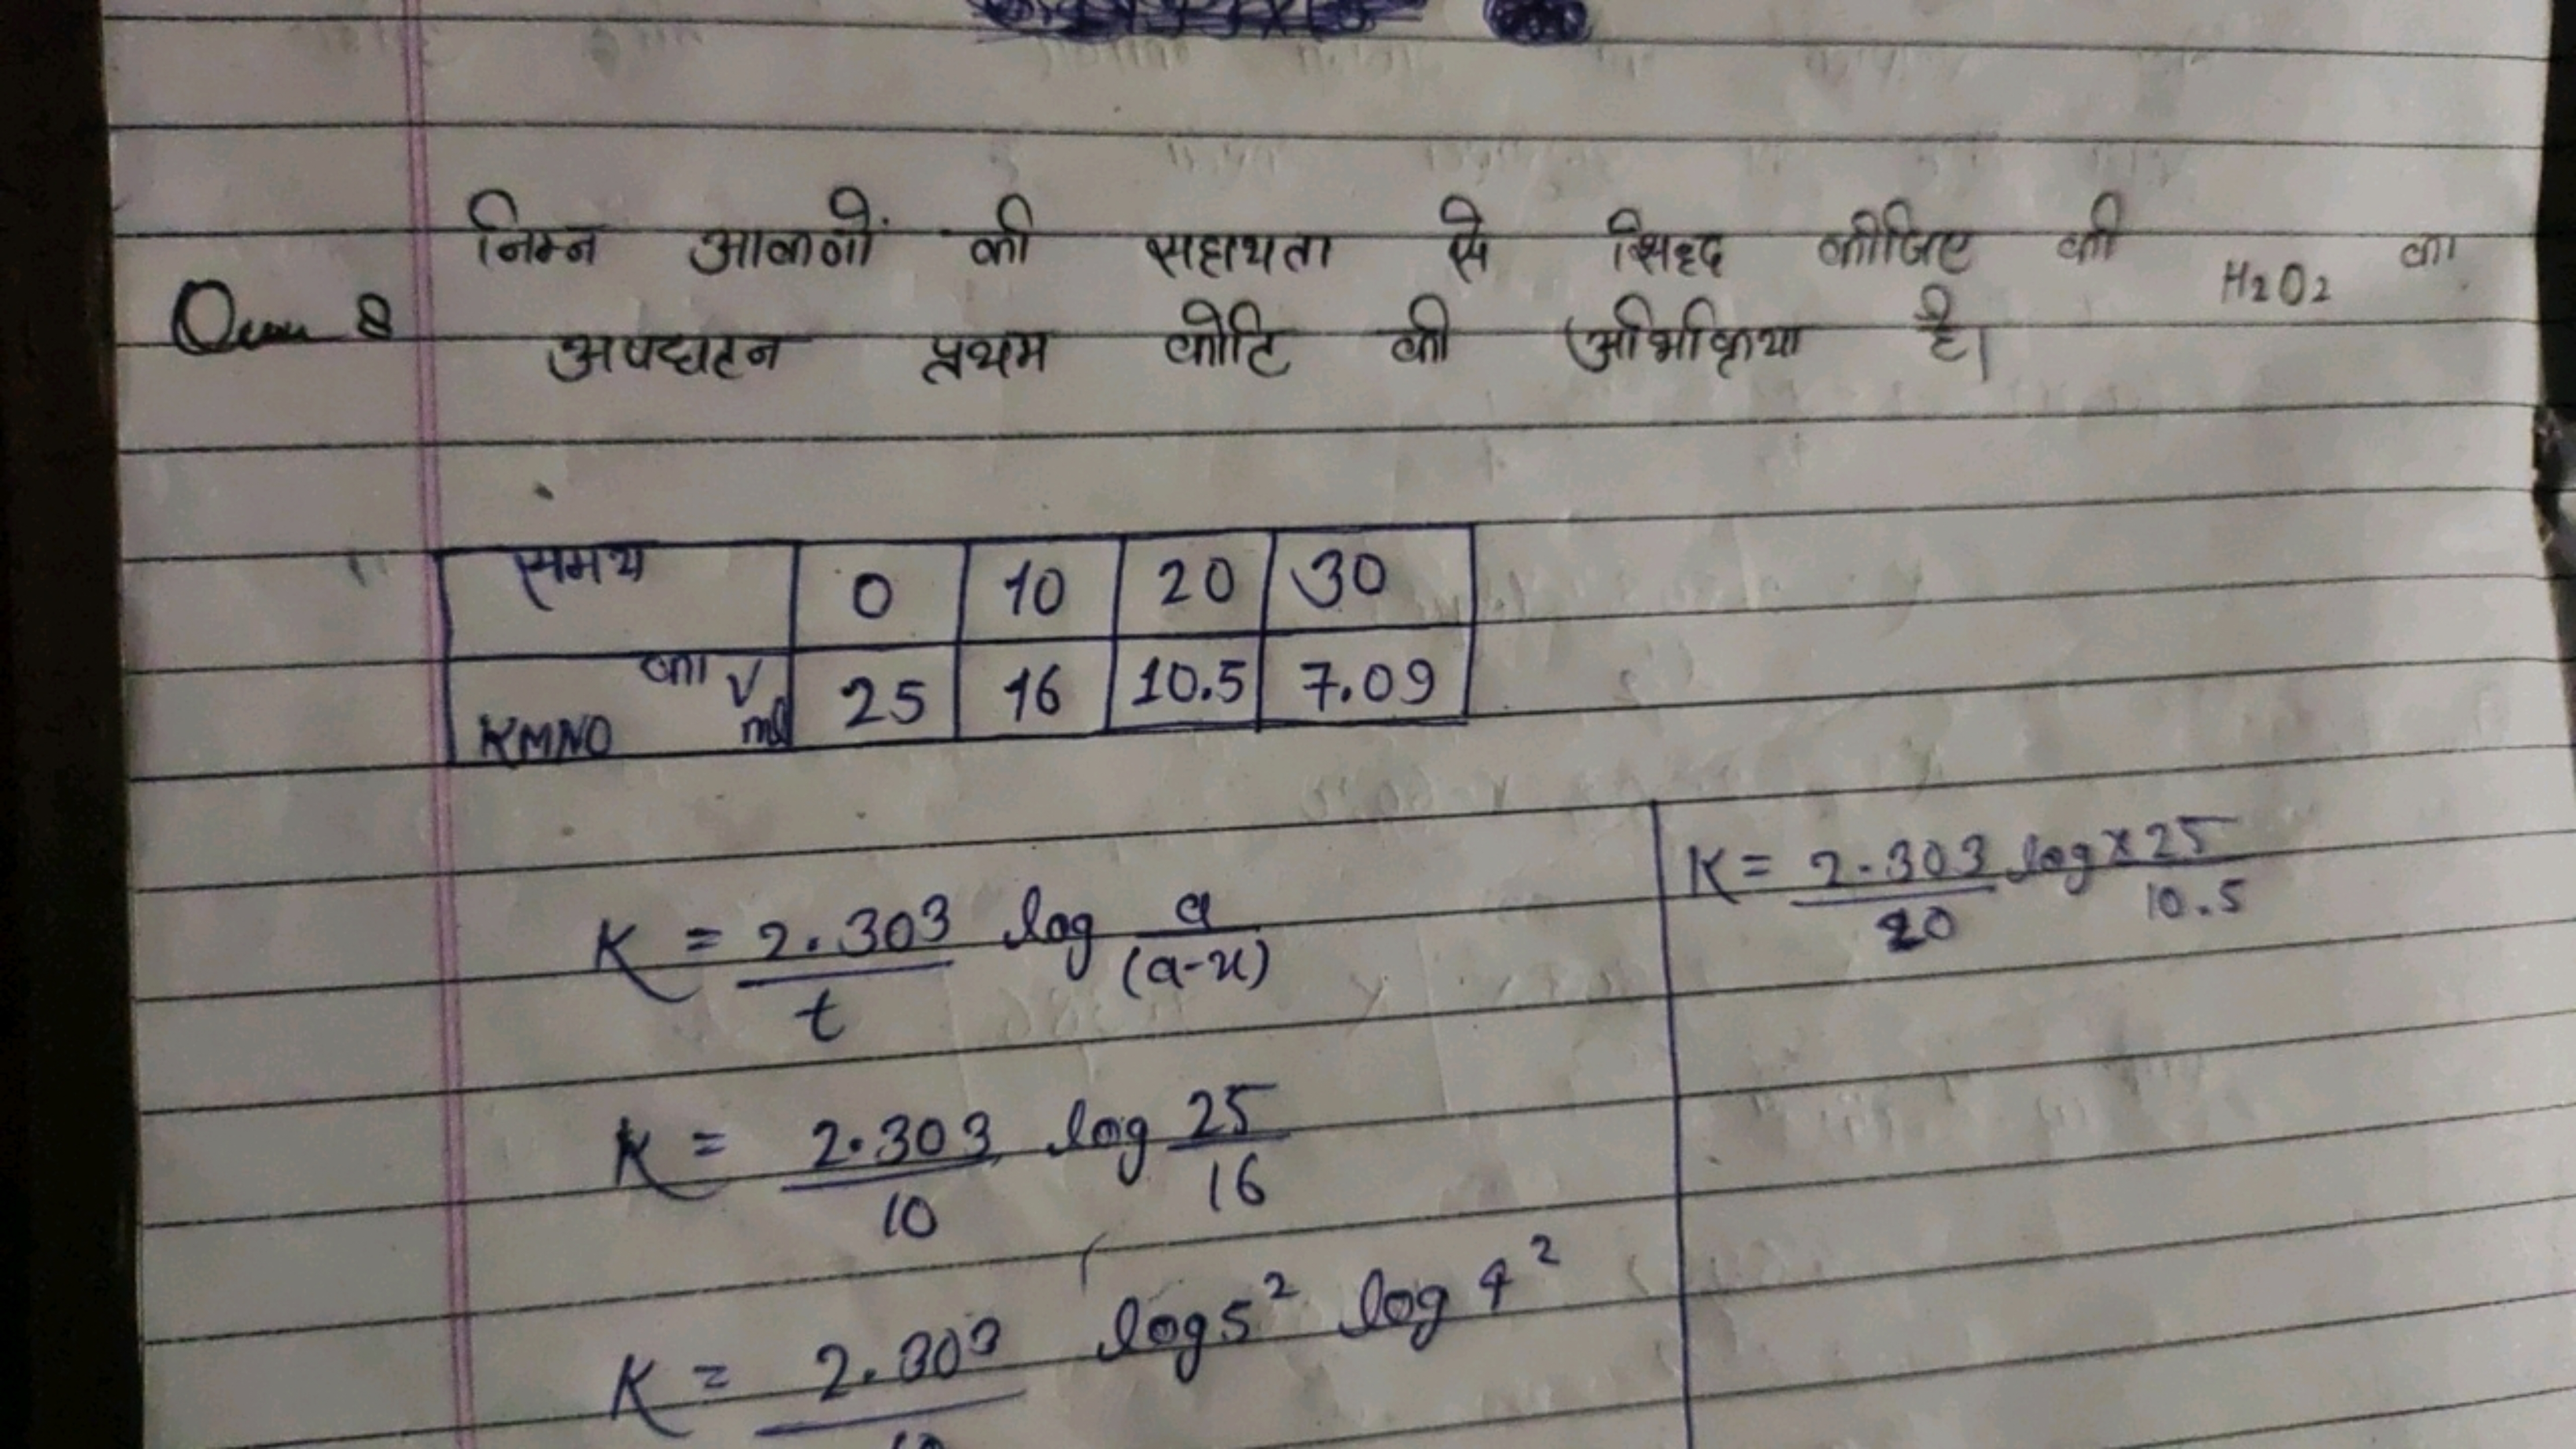 निम्न आकणों की सहायता से सिद्द कीजिए की H2O2 का
Que 8 अपघटन प्रथम कोटि की अभिक्रिया है।
समय 0 10 20 30
KMNO का V ml 25 16 10.5 7.09
K = 2.303/t log a/(a-x)
K = 2.303/10 log 25/16
K = 2.303/10 log5² log4²
K = 2.303/20 log x 25/10.5